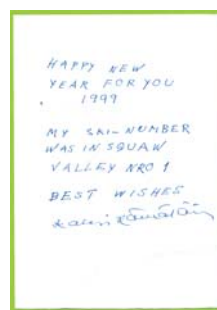 HAPPY NEW
YEAR FOR YOU
1999
MY SKI-NUMBER
WAS IN SQUAW
VALLEY NRO 1
BEST WISHES